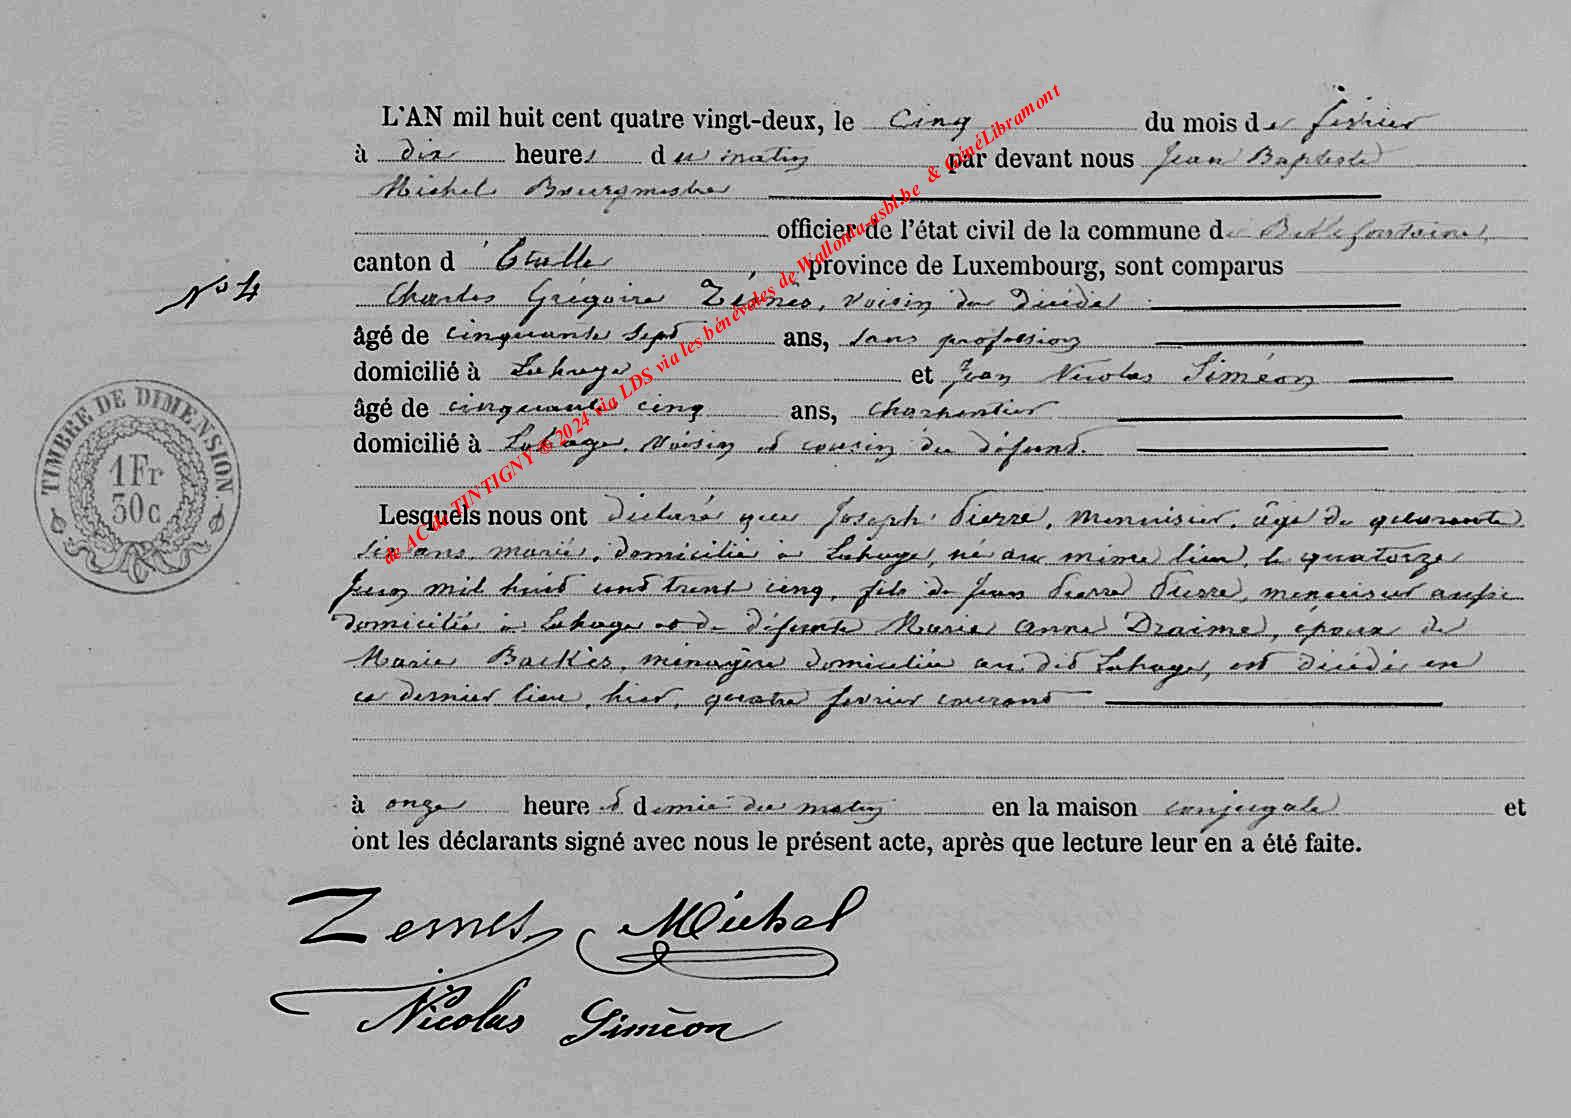 L'AN mil huit cent quatre vingt-deux, le Cinq du mois de février
à dix heures du matin par devant nous Jean Baptiste
Michel Bourgmestre
officier de l'état civil de la commune de Bellefontaine,
canton d'Etalle, province de Luxembourg, sont comparus
N° 4
Charles Grégoire Zernès, voisin du décédé
âgé de cinquante sept ans, sans profession
domicilié à Lahage et Jean Nicolas Siméon
âgé de cinquante cinq ans, charpentier
domicilié à Lahage, voisin et cousin du défunt.
TIMBRE DE DIMENSION.
1 Fr
30 c
Lesquels nous ont déclaré que Joseph Pierre, menuisier, âgé de quarante
six ans, marié, domicilié à Lahage, né au même lieu, le quatorze
Juin mil huit cent trente cinq, fils de Jean Pierre Pierre, menuisier aussi
domicilié à Lahage et de défunte Marie Anne Draime, époux de
Marie Backès, ménagère domiciliée au dit Lahage, est décédé en
ce dernier lieu, hier, quatre février courant
à onze heure et demie du matin en la maison conjugale et
ont les déclarants signé avec nous le présent acte, après que lecture leur en a été faite.
Zernes Michel
Nicolas Siméon
de AC de TINTIGNY © 2024 via LDS via les bénévoles de Wallonia-asbl.be & GénéLibramont